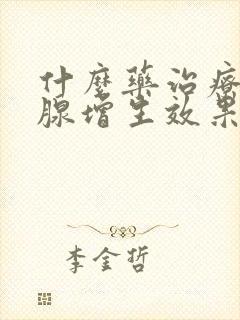 什麼藥治療
腺增生效果
李金哲